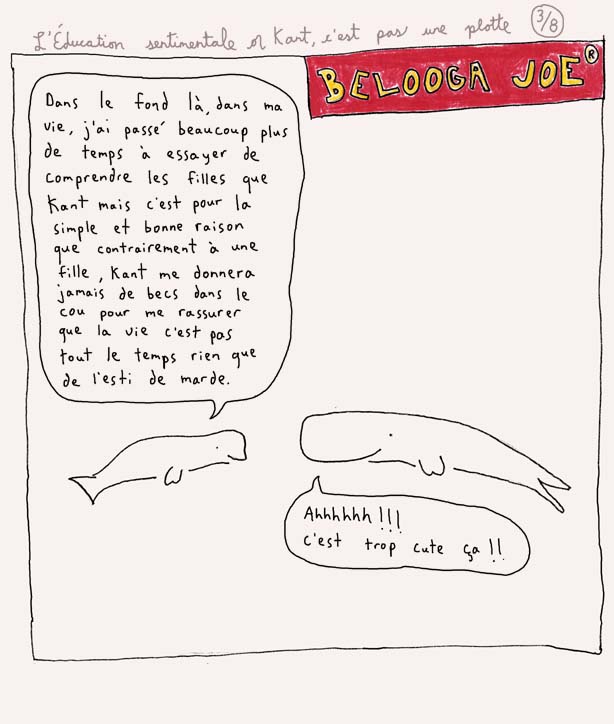 L'Éducation sentimentale or Kant, c'est pas une plotte 3/8
BELOOGA JOE®
Dans le fond là, dans ma
vie, j'ai passé beaucoup plus
de temps à essayer de
comprendre les filles que
Kant mais c'est pour la
simple et bonne raison
que contrairement à une
fille, Kant me donnera
jamais de becs dans le
cou pour me rassurer
que la vie c'est pas
tout le temps rien que
de l'esti de marde.
Ahhhhhh!!!
c'est trop cute ça!!